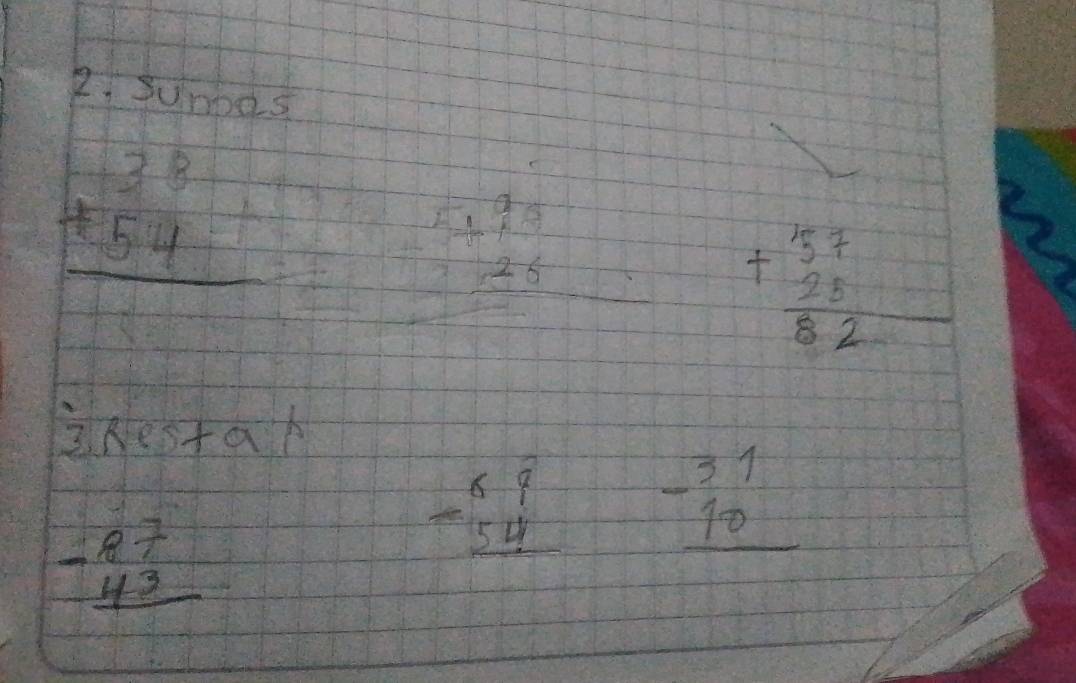 2. Sumas
38
+ 54
+ 
26
+ 57
25
82
3. Restar
- 87
43
- 69
54
- 31
10